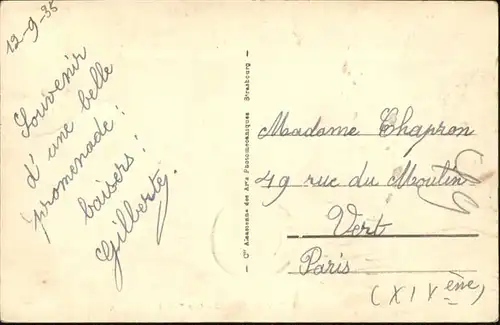 12-9-35
Souvenir
d'une belle
promenade!
baisers!
Gilberte.
Cie Alsacienne des Arts Photomécaniques Strasbourg
Madame Chapron
49 rue du Moulin
Vert
Paris
(XIVème)